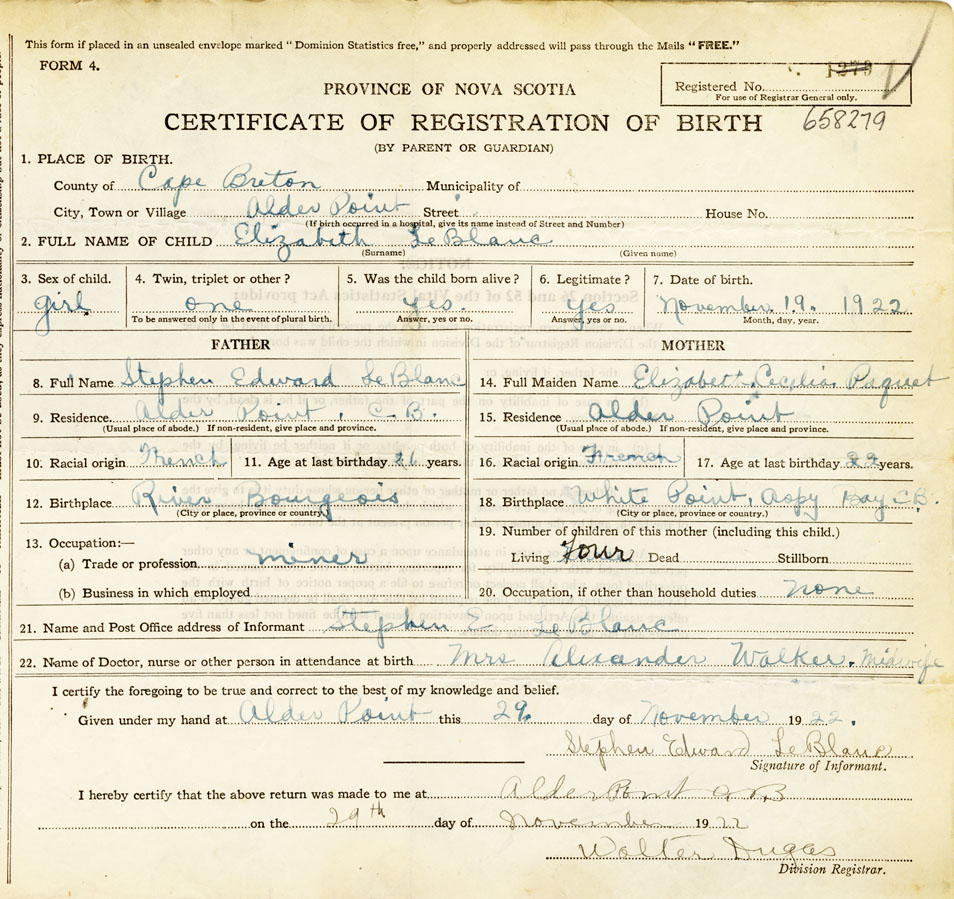 This form if placed in an unsealed envelope marked "Dominion Statistics free," and properly addressed will pass through the Mails "FREE."
FORM 4.
1279
Registered No.
For use of Registrar General only.
PROVINCE OF NOVA SCOTIA
CERTIFICATE OF REGISTRATION OF BIRTH 658279
(BY PARENT OR GUARDIAN)
1. PLACE OF BIRTH.
County of Cape Breton Municipality of
City, Town or Village Alder Point Street House No.
(If birth occurred in a hospital, give its name instead of Street and Number)
2. FULL NAME OF CHILD Elizabeth LeBlanc
(Surname) (Given name)
3. Sex of child. 4. Twin, triplet or other? 5. Was the child born alive? 6. Legitimate? 7. Date of birth.
girl one Yes. Yes November 19. 1922
To be answered only in the event of plural birth. Answer, yes or no. Answer, yes or no. Month, day, year.
FATHER MOTHER
8. Full Name Stephen Edward LeBlanc 14. Full Maiden Name Elizabeth Cecilia Paquet
9. Residence Alder Point, C.B. 15. Residence Alder Point
(Usual place of abode.) If non-resident, give place and province. (Usual place of abode.) If non-resident, give place and province.
10. Racial origin French 11. Age at last birthday years. 16. Racial origin French 17. Age at last birthday years.
12. Birthplace River Bourgeois 18. Birthplace White Point, Aspy Bay C.B.
(City or place, province or country) (City or place, province or country.)
13. Occupation:— 19. Number of children of this mother (including this child.)
(a) Trade or profession miner Living Four Dead Stillborn
(b) Business in which employed 20. Occupation, if other than household duties None
21. Name and Post Office address of Informant Stephen E LeBlanc
22. Name of Doctor, nurse or other person in attendance at birth Mrs Alexander Walker. Midwife
I certify the foregoing to be true and correct to the best of my knowledge and belief.
Given under my hand at Alder Point this 29. day of November 1922.
Stephen Edward LeBlanc
Signature of Informant.
I hereby certify that the above return was made to me at Alder Point C.B
on the 29th day of November 1922
Walter Dugas
Division Registrar.